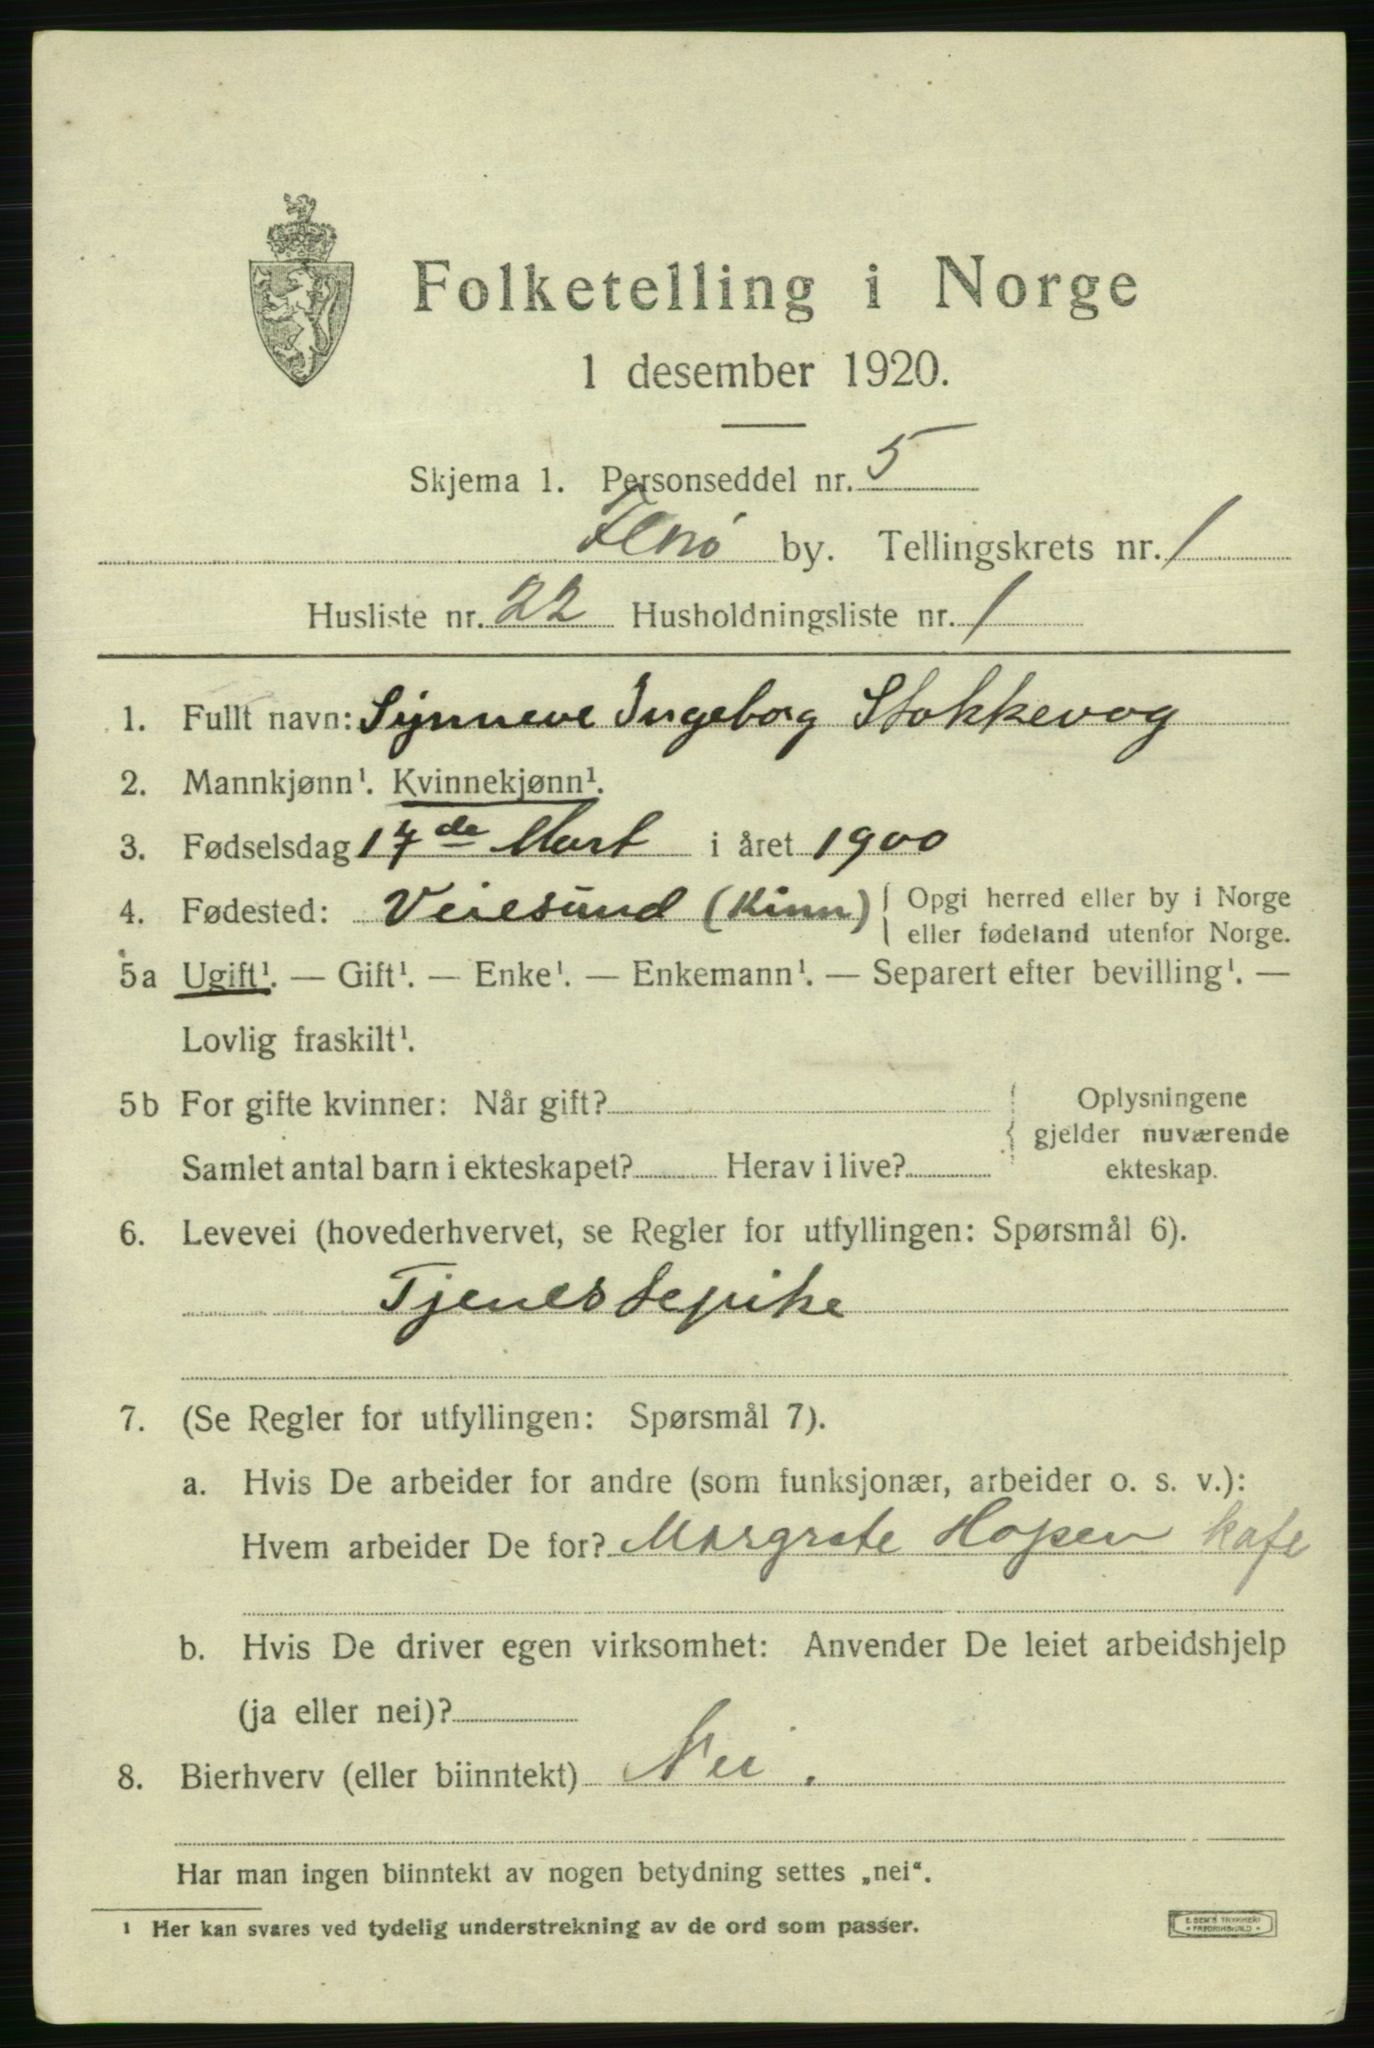 Folketelling i Norge
1 desember 1920.
Skjema 1. Personseddel nr. 5
Florø by. Tellingskrets nr. 1
Husliste nr. 22 Husholdningsliste nr. 1
1. Fullt navn: Synneve Ingeborg Stokkevog
2. Mannkjønn¹. Kvinnekjønn¹.
3. Fødselsdag 17de Mars i året 1900
4. Fødested: Veiesund (Kinn) { Opgi herred eller by i Norge
eller fødeland utenfor Norge.
5a Ugift¹. — Gift¹. — Enke¹. — Enkemann¹. — Separert efter bevilling¹. —
Lovlig fraskilt¹.
5b For gifte kvinner: Når gift?
Samlet antal barn i ekteskapet? Herav i live?
{ Oplysningene
gjelder nuværende
ekteskap.
6. Levevei (hovederhvervet, se Regler for utfyllingen: Spørsmål 6).
Tjenestepike
7. (Se Regler for utfyllingen: Spørsmål 7).
a. Hvis De arbeider for andre (som funksjonær, arbeider o. s. v.):
Hvem arbeider De for? Margrete Hopen kafe
b. Hvis De driver egen virksomhet: Anvender De leiet arbeidshjelp
(ja eller nei)?
8. Bierhverv (eller biinntekt) Nei.
Har man ingen biinntekt av nogen betydning settes „nei“.
¹ Her kan svares ved tydelig understrekning av de ord som passer.
E. SEM'S TRYKKERI
FREDRIKSHALD